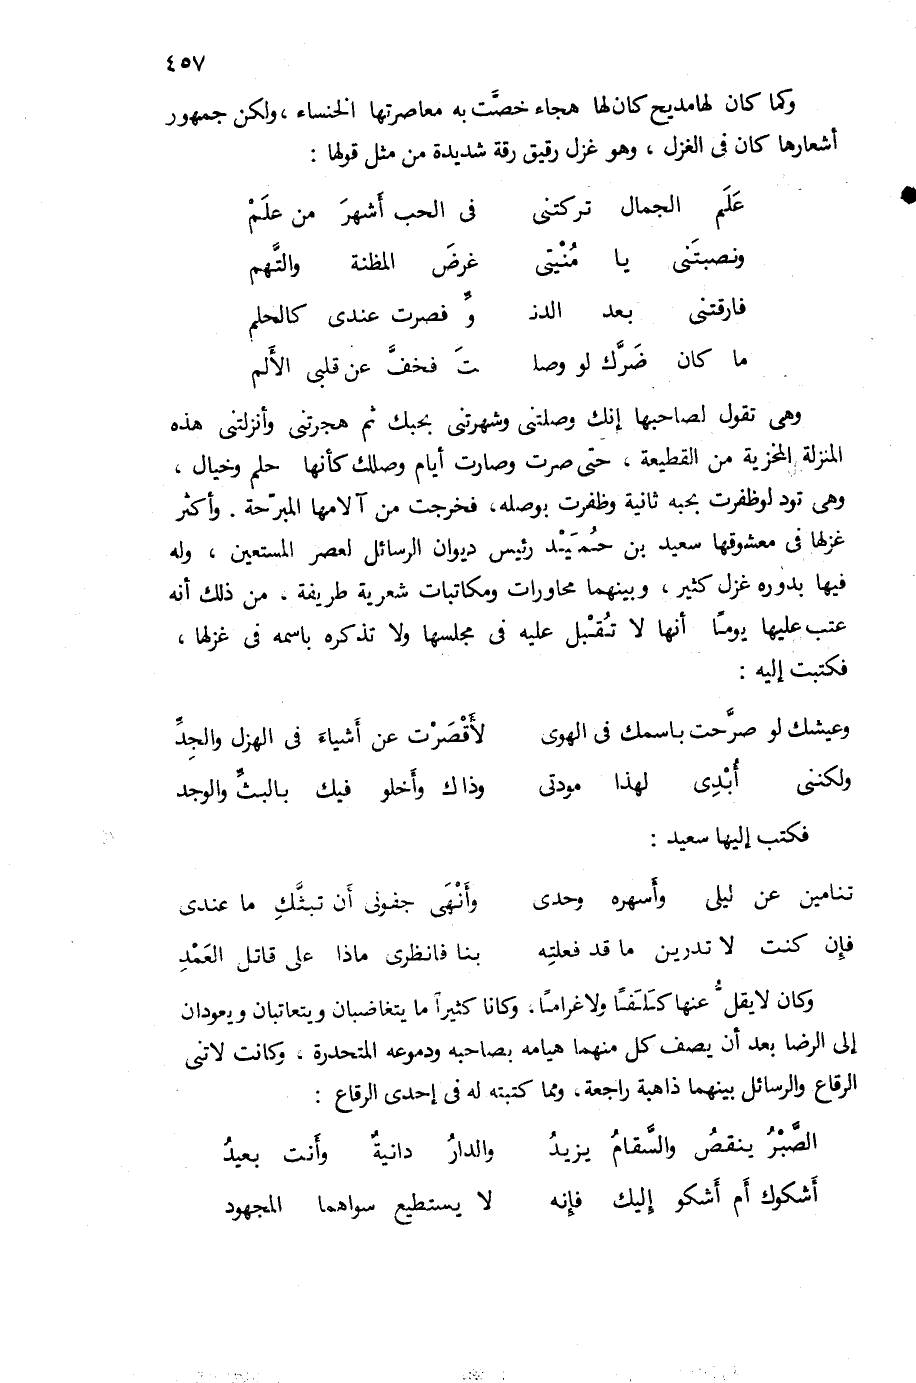 ٤٥٧
وكما كان لها مديح كان لها هجاء خصَّت به معاصرتها الخنساء ، ولكن جمهور
أشعارها كان فى الغزل ، وهو غزل رقيق رقة شديدة من مثل قولها :
عَلَم الجمال تركتنى فى الحب أَشهرَ من علَمْ
ونصبتَنى يا مُنْيتِى غرضَ المظنة والتَّهم
فارقتنى بعد الدنـ ـوِّ فصرت عندى كالحلم
ما كان ضَرَّك لو وصلـ ـتَ فخفَّ عن قلبى الأَلم
وهى تقول لصاحبها إنك وصلتنى وشهرتنى بحبك ثم هجرتنى وأنزلتنى هذه
المنزلة المخزية من القطيعة ، حتى صرت وصارت أيام وصلك كأنها حلم وخيال ،
وهى تود لو ظفرت بحبه ثانية وظفرت بوصله، فخرجت من آلامها المبرّحة . وأكثر
غزلها فى معشوقها سعيد بن حُمَيْد رئيس ديوان الرسائل لعصر المستعين ، وله
فيها بدوره غزل كثير ، وبينهما محاورات ومكاتبات شعرية طريفة ، من ذلك أنه
عتب عليها يومًا أنها لا تُقْبل عليه فى مجلسها ولا تذكره باسمه فى غزلها ،
فكتبت إليه :
وعيشك لو صرَّحت باسمك فى الهوى لأَقْصَرْت عن أَشياءَ فى الهزل والجِدِّ
ولكننى أُبْدِى لهذا مودتى وذاك وأَخلو فيك بالبثِّ والوجد
فكتب إليها سعيد :
تنامين عن ليلى وأَسهره وحدى وأَنْهَى جفونى أن تبثَّكِ ما عندى
فإِن كنت لا تدرين ما قد فعلتِه بنا فانظرى ماذا على قاتل العَمْدِ
وكان لا يقلُّ عنها كَلَفًا ولا غرامًا، وكانا كثيرًا ما يتغاضبان ويتعاتبان ويعودان
إلى الرضا بعد أن يصف كل منهما هيامه بصاحبه ودموعه المتحدرة ، وكانت لاتنى
الرقاع والرسائل بينهما ذاهبة راجعة، ومما كتبته له فى إحدى الرقاع :
الصَّبْرُ ينقصُ والسَّقامُ يزيدُ والدارُ دانيةٌ وأَنت بعيدُ
أَشكوك أم أَشكو إِليك فإِنه لا يستطيع سواهما المجهود